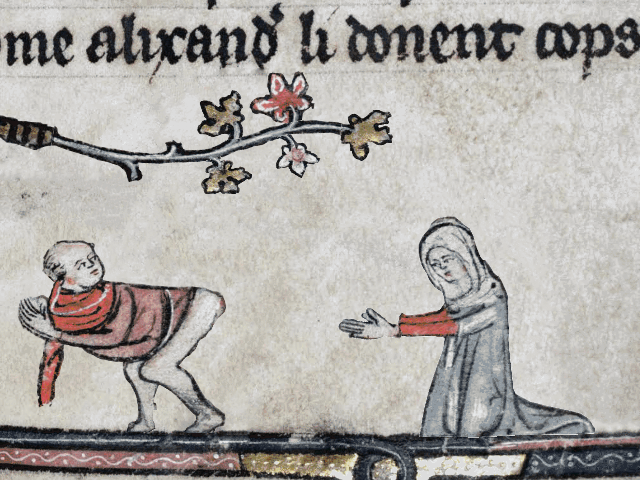 ome alixand' li donent cops